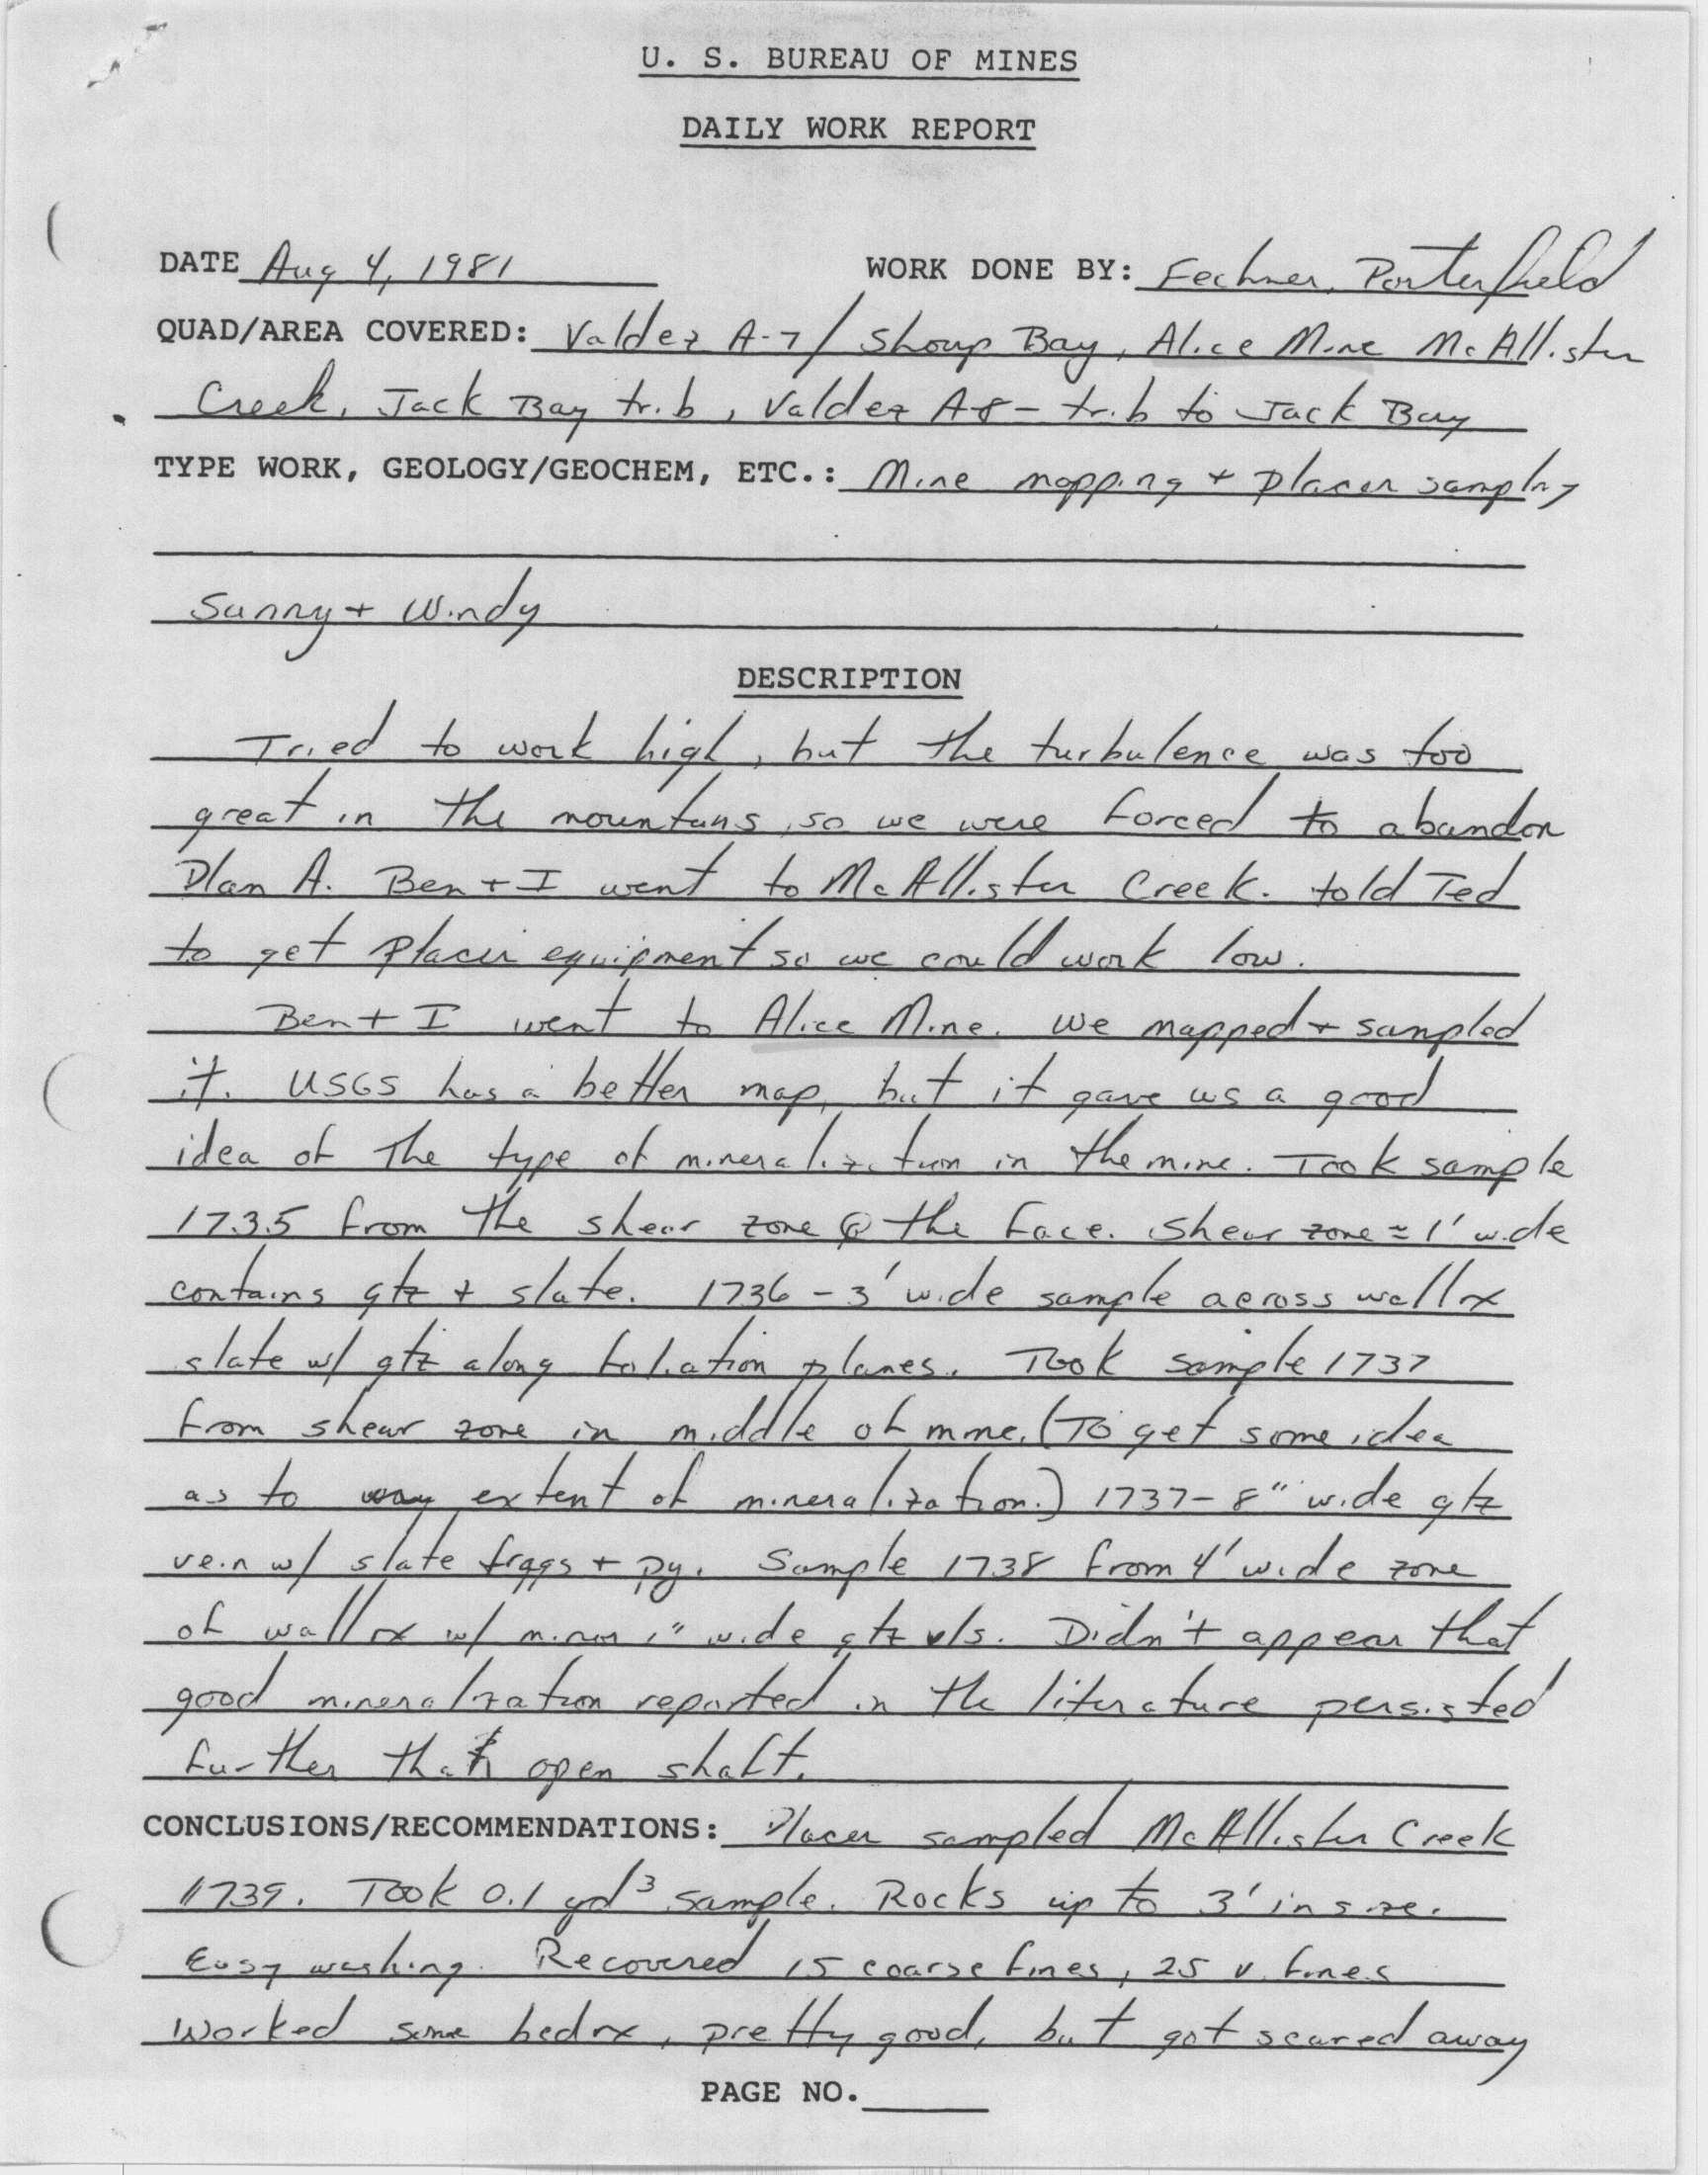 U. S. BUREAU OF MINES
DAILY WORK REPORT
DATE Aug 4, 1981 WORK DONE BY: Fechner, Porterfield
QUAD/AREA COVERED: Valdez A-7/ Shoup Bay, Alice Mine McAllister
Creek, Jack Bay trib, Valdez A-8 - trib to Jack Bay
TYPE WORK, GEOLOGY/GEOCHEM, ETC.: Mine mapping + placer sampling
Sunny + Windy
DESCRIPTION
Tried to work high, but the turbulence was too
great in the mountains, so we were forced to abandon
Plan A. Ben + I went to McAllister Creek. told Ted
to get placer equipment so we could work low.
Ben + I went to Alice Mine. We mapped + sampled
it. USGS has a better map, but it gave us a good
idea of the type of mineralization in the mine. Took sample
1735 from the shear zone @ the face. Shear zone ≈ 1' wide
contains qtz + slate. 1736 - 3' wide sample across wallrx
slate w/ qtz along foliation planes. Took sample 1737
from shear zone in middle of mine. (To get some idea
as to extent of mineralization.) 1737 - 8" wide qtz
vein w/ slate frags + py. Sample 1738 from 4' wide zone
of wallrx w/ minor 1" wide qtz vls. Didn't appear that
good mineralization reported in the literature persisted
further than open shaft.
CONCLUSIONS/RECOMMENDATIONS: Placer sampled McAllister Creek
1739. Took 0.1 yd³ sample. Rocks up to 3' in size.
Easy washing. Recovered 15 coarse fines, 25 v. fines
Worked some bedrx, pretty good, but got scared away
PAGE NO.